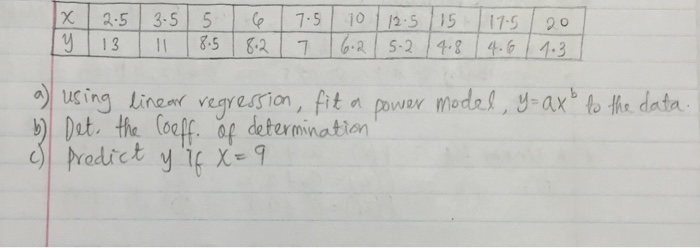 x 2.5 3.5 5 6 7.5 10 12.5 15 17.5 20
y 13 11 8.5 8.2 7 6.2 5.2 4.8 4.6 4.3
a) using linear regression, fit a power model, y=ax^b to the data.
b) Det. the Coeff. of determination
c) Predict y if x=9